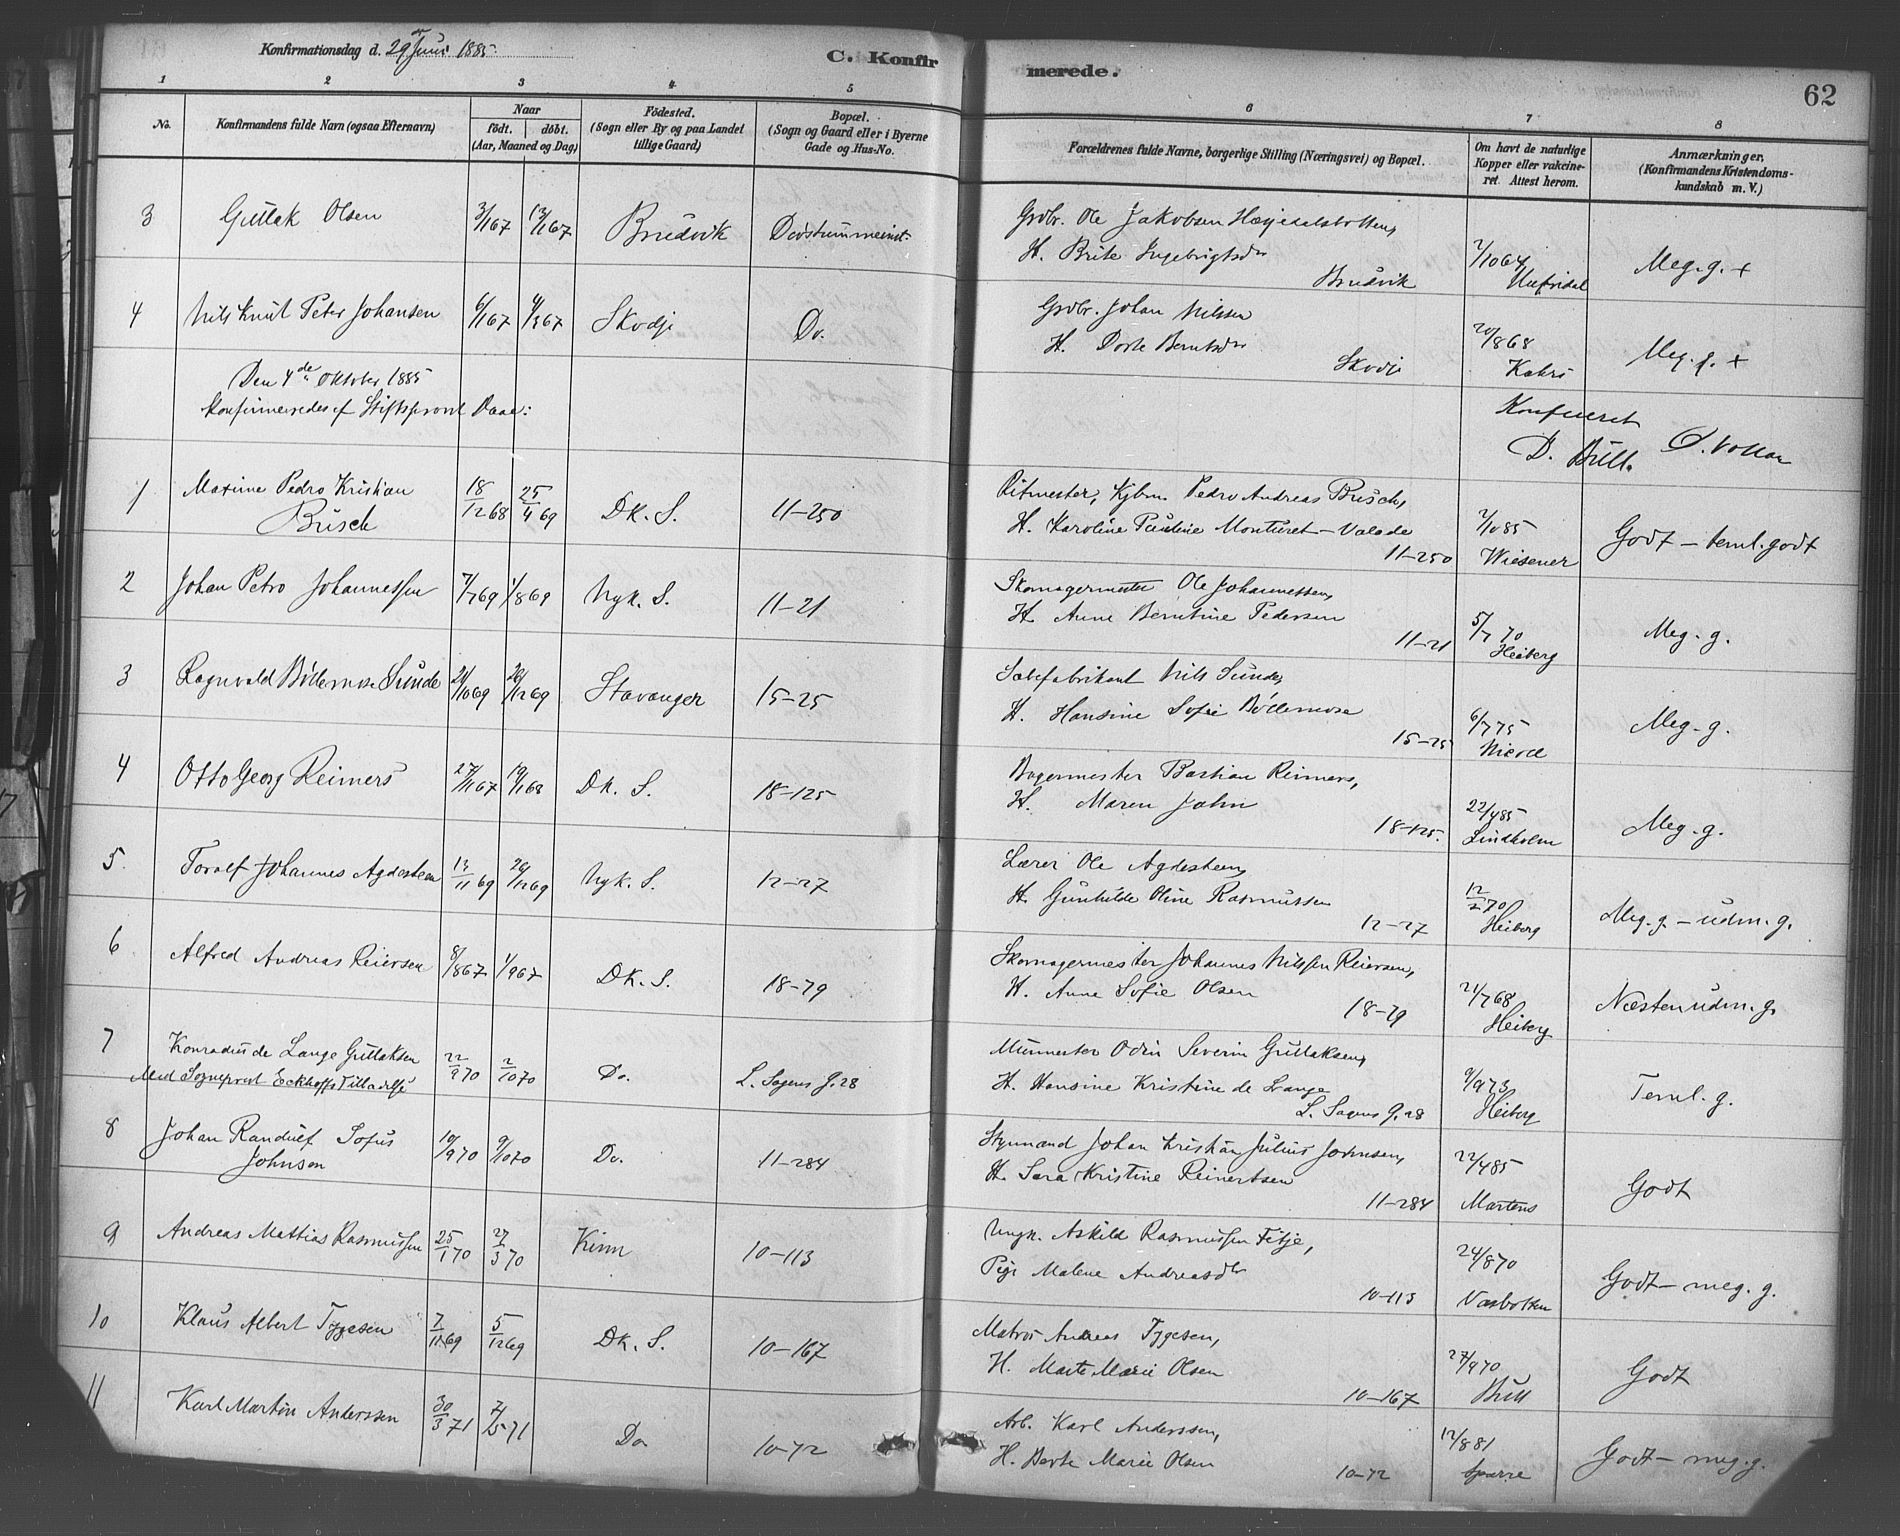 Konfirmationsdag d. 29de Juni 1885.
C. Konfirmerede.
62
1 2 3 4 5 6 7 8
No.
Konfirmandens fulde Navn (ogsaa Efternavn)
Naar
födt. döbt.
(Aar, Maaned og Dag)
Födested.
(Sogn eller By og paa Landet
tillige Gaard)
Bopæl.
(Sogn og Gaard eller i Byerne
Gade og Hus-No.
Forældrenes fulde Navne, borgerlige Stilling (Næringsvei) og Bopæl.
Om havt de naturlige
Kopper eller vakcine-
ret. Attest herom.
Anmærkninger.
(Konfirmandens Kristendoms-
kundskab m. V.)
3 Gullak Olsen 3/1 67 13/1 67 Brudvik Døvstummeinst.
Grdbr. Ole Jakobsen
H. Brite Ingebrigtsdr
Brudvik
Meg. g. +
4 Nils Knut Peter Johansen 6/1 67 4/3 67 Skodje Do.
Grdbr. Johan Nilssen
H. Dorte Berntsdr
Skodje
20/8 68
Meg. g. +
Den 4de Oktober 1885
konfirmeredes af Stiftsprovst Daae:
Konfereret
D. Bull.
1 Maxime Pedro Kristian
Büsch
18/12 68 25/4 69 Dk. S. 11-250
Ritmester, Kjbm. Pedro Andreas Büsch,
H. Karoline Pauline Monturet-Valade
11-250
7/10 85
Wiesener
Godt - teml. godt
2 Johan Petro Johannessen 7/7 69 1/8 69 Nyk. S. 11-21
Skomagermester Ole Johannessen,
H. Anne Berntine Pedersen
11-21
5/7 70
Heiberg
Meg. g.
3 Ragnvald Böllemose Sunde 21/10 69 26/12 69 Stavanger 15-25
Sæbefabrikant Nils Sunde,
H. Hansine Sofie Böllemose
15-25
6/7 75
Meg. g.
4 Otto Georg Reimers 27/11 67 19/1 68 Dk. S. 18-125
Bagermester Bastian Reimers,
H. Maren Jahn
18-125.
22/4 85
Lindholm
Meg. g.
5. Toralf Johannes Agdesteen 13/11 69 26/12 69 Nyk. S. 12-27
Lærer Ole Agdesteen,
H. Gunhilde Oline Rasmussen
12-27
12/2 70
Heiberg
Meg. g - udm. g.
6 Alfred Andreas Reiersen 8/8 67 1/9 67 Dk. S. 18-79
Skomagermester Johannes Nilssen Reiersen,
H. Anne Sofie Olsen
18-79
21/7 68
Heiberg
Næsten udm. g.
7 Konradus de Lange Gullaksen
Med Sogneprest Eckhoffs Tilladelse
22/9 70 2/10 70 Do. L. Sagens G. 28
Murmester Odin Severin Gullaksen,
H. Hansine Kristine de Lange
L. Sagens G. 28
9/9 73
Heiberg
Teml. g.
8 Johan Randulf Sofus
Johnsen
10/9 70 9/10 70 Do. 11-284
Styrmand Johan Kristian Julius Johnsen,
H. Sara Kristine Reinertsen
11-284
22/4 85
Martens
Godt
9 Andreas Mattias Rasmussen 25/1 70 27/3 70 Kinn 10-113
Ungk. Askild Rasmussen Fitje,
Pige Malene Andreasdr
10-113
24/8 70
Vasbotten
Godt - meg. g.
10 Klaus Albert Tygesen 7/11 69 5/12 69 Dk. S. 10-167
Matros Andreas Tygesen,
H. Marte Marie Olsen
10-167
27/9 70
Bull
Godt
11 Karl Martin Anderssen 30/3 71 7/5 71 Do. 10-72
Arb. Karl Anderssen,
H. Berte Marie Olsen
10-72
12/8 81
Sparre
Godt - meg. g.